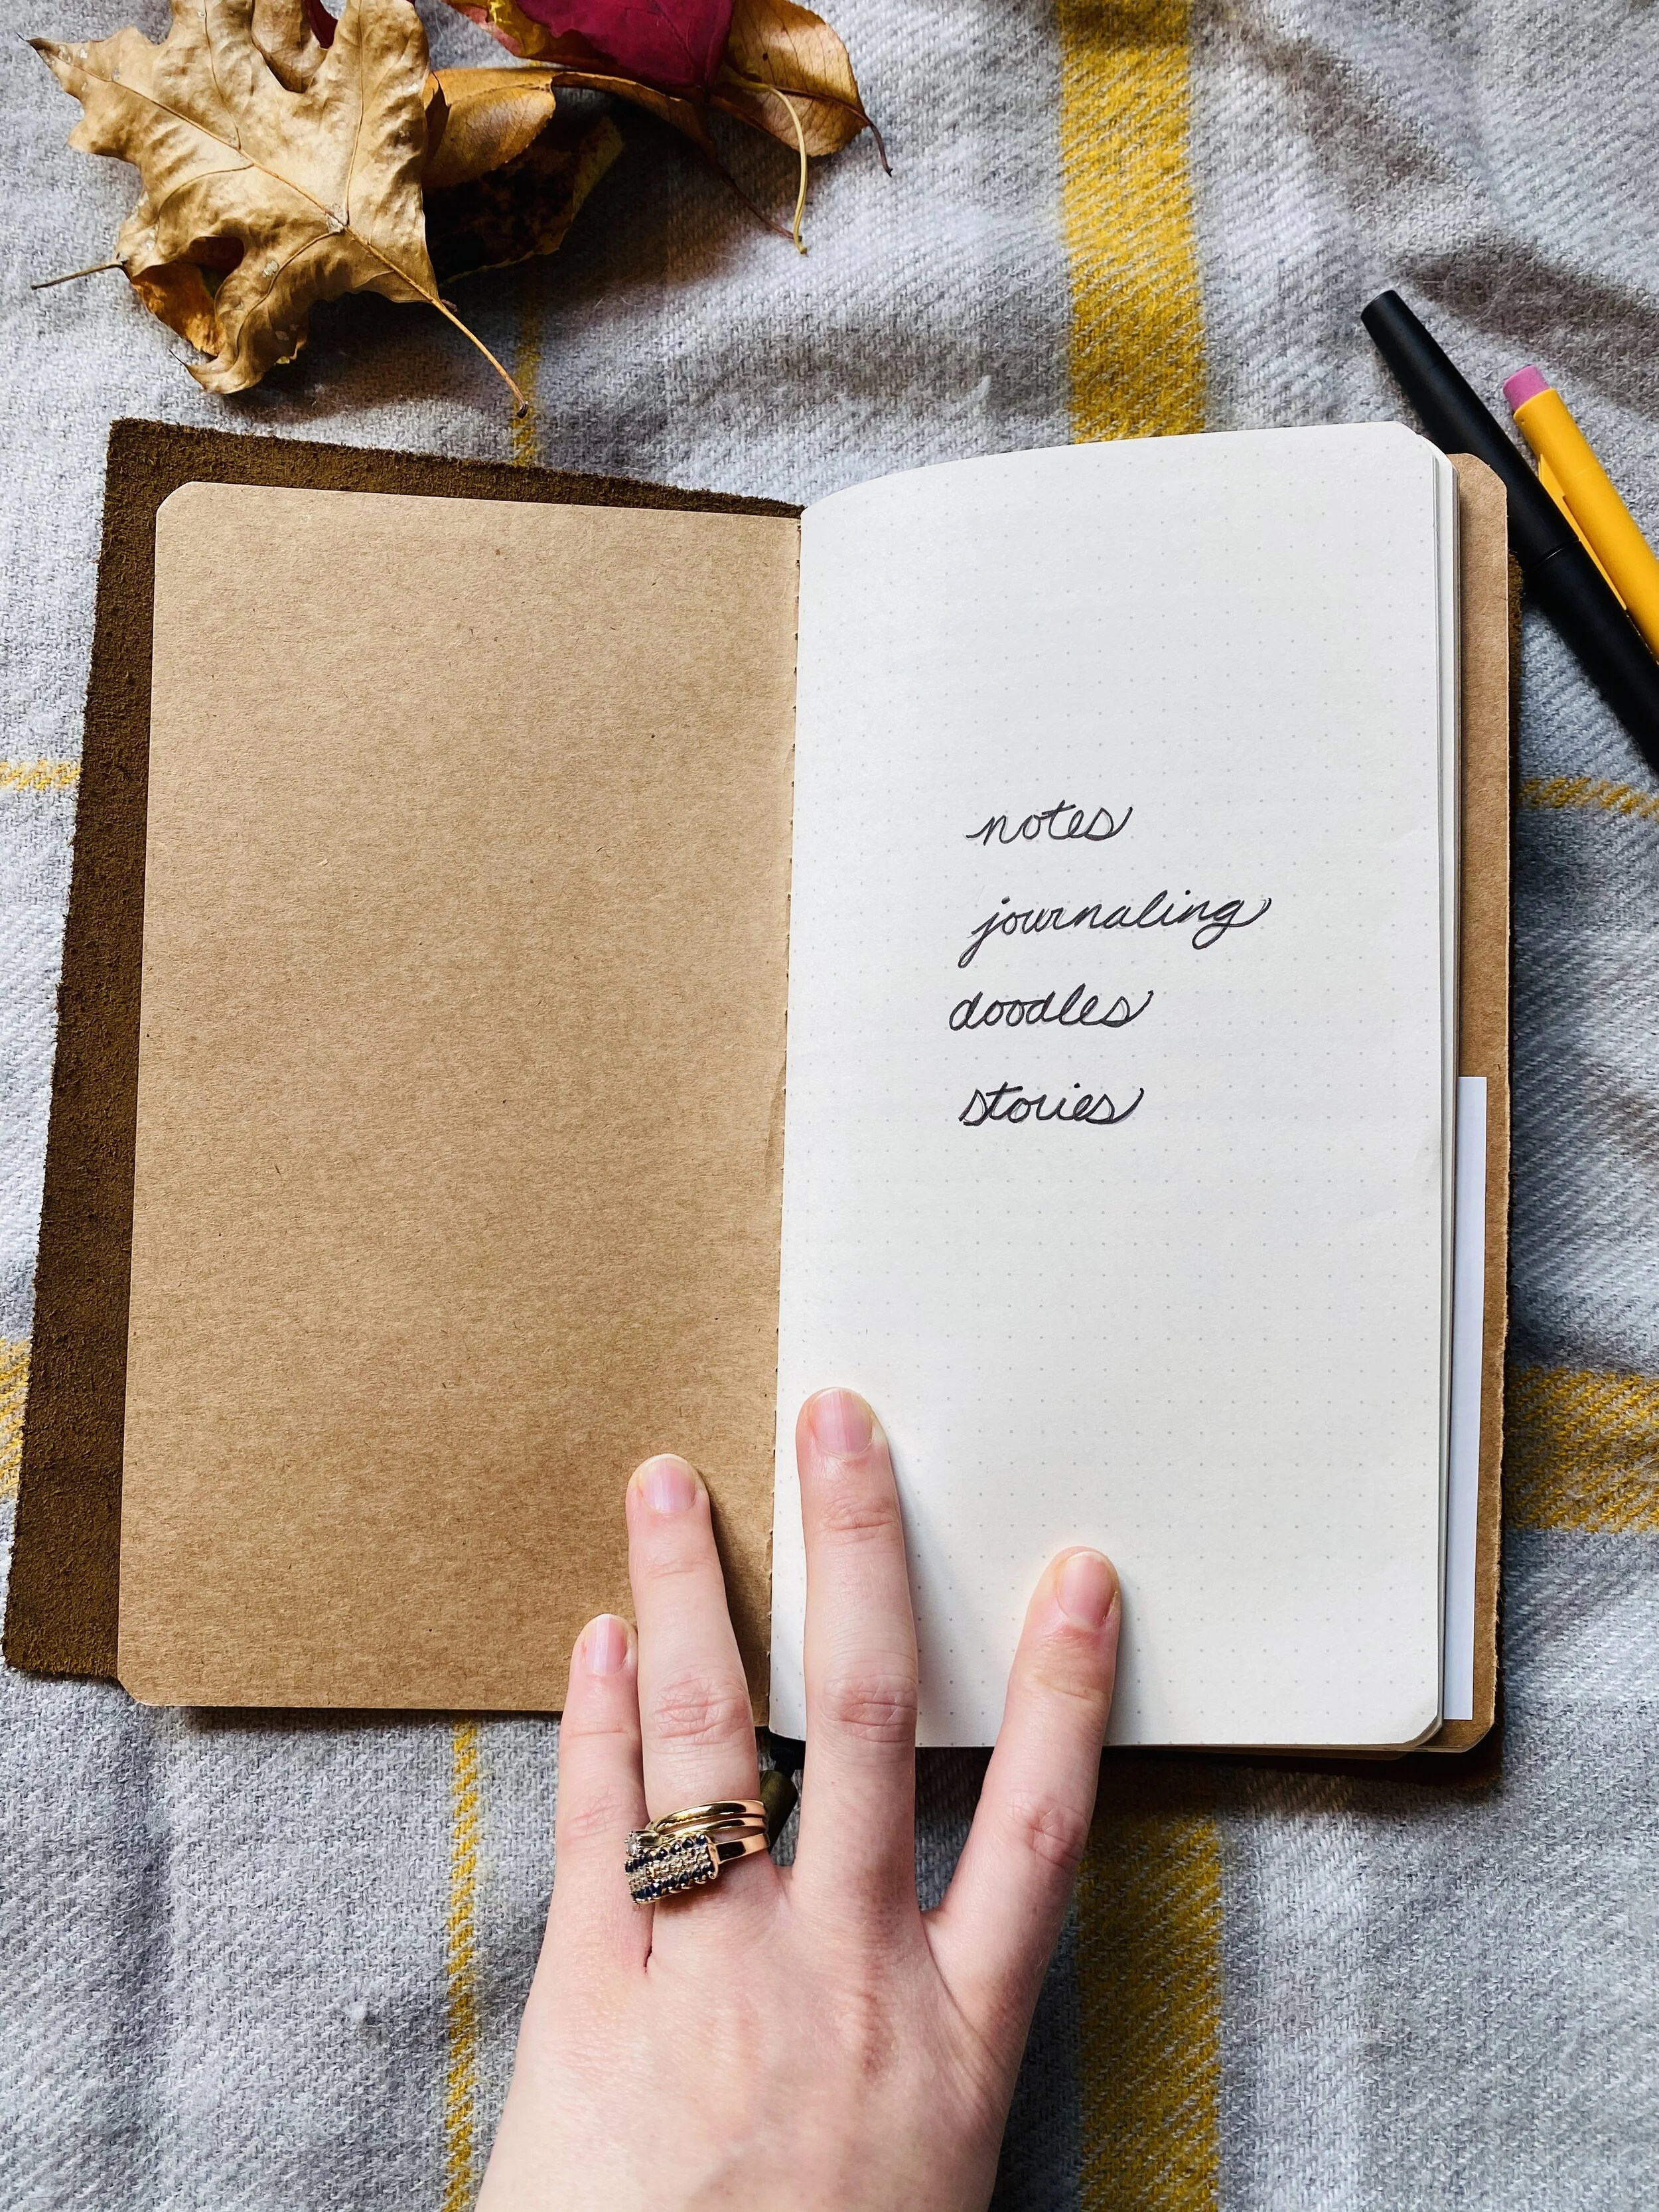 notes
journaling
doodles
stories